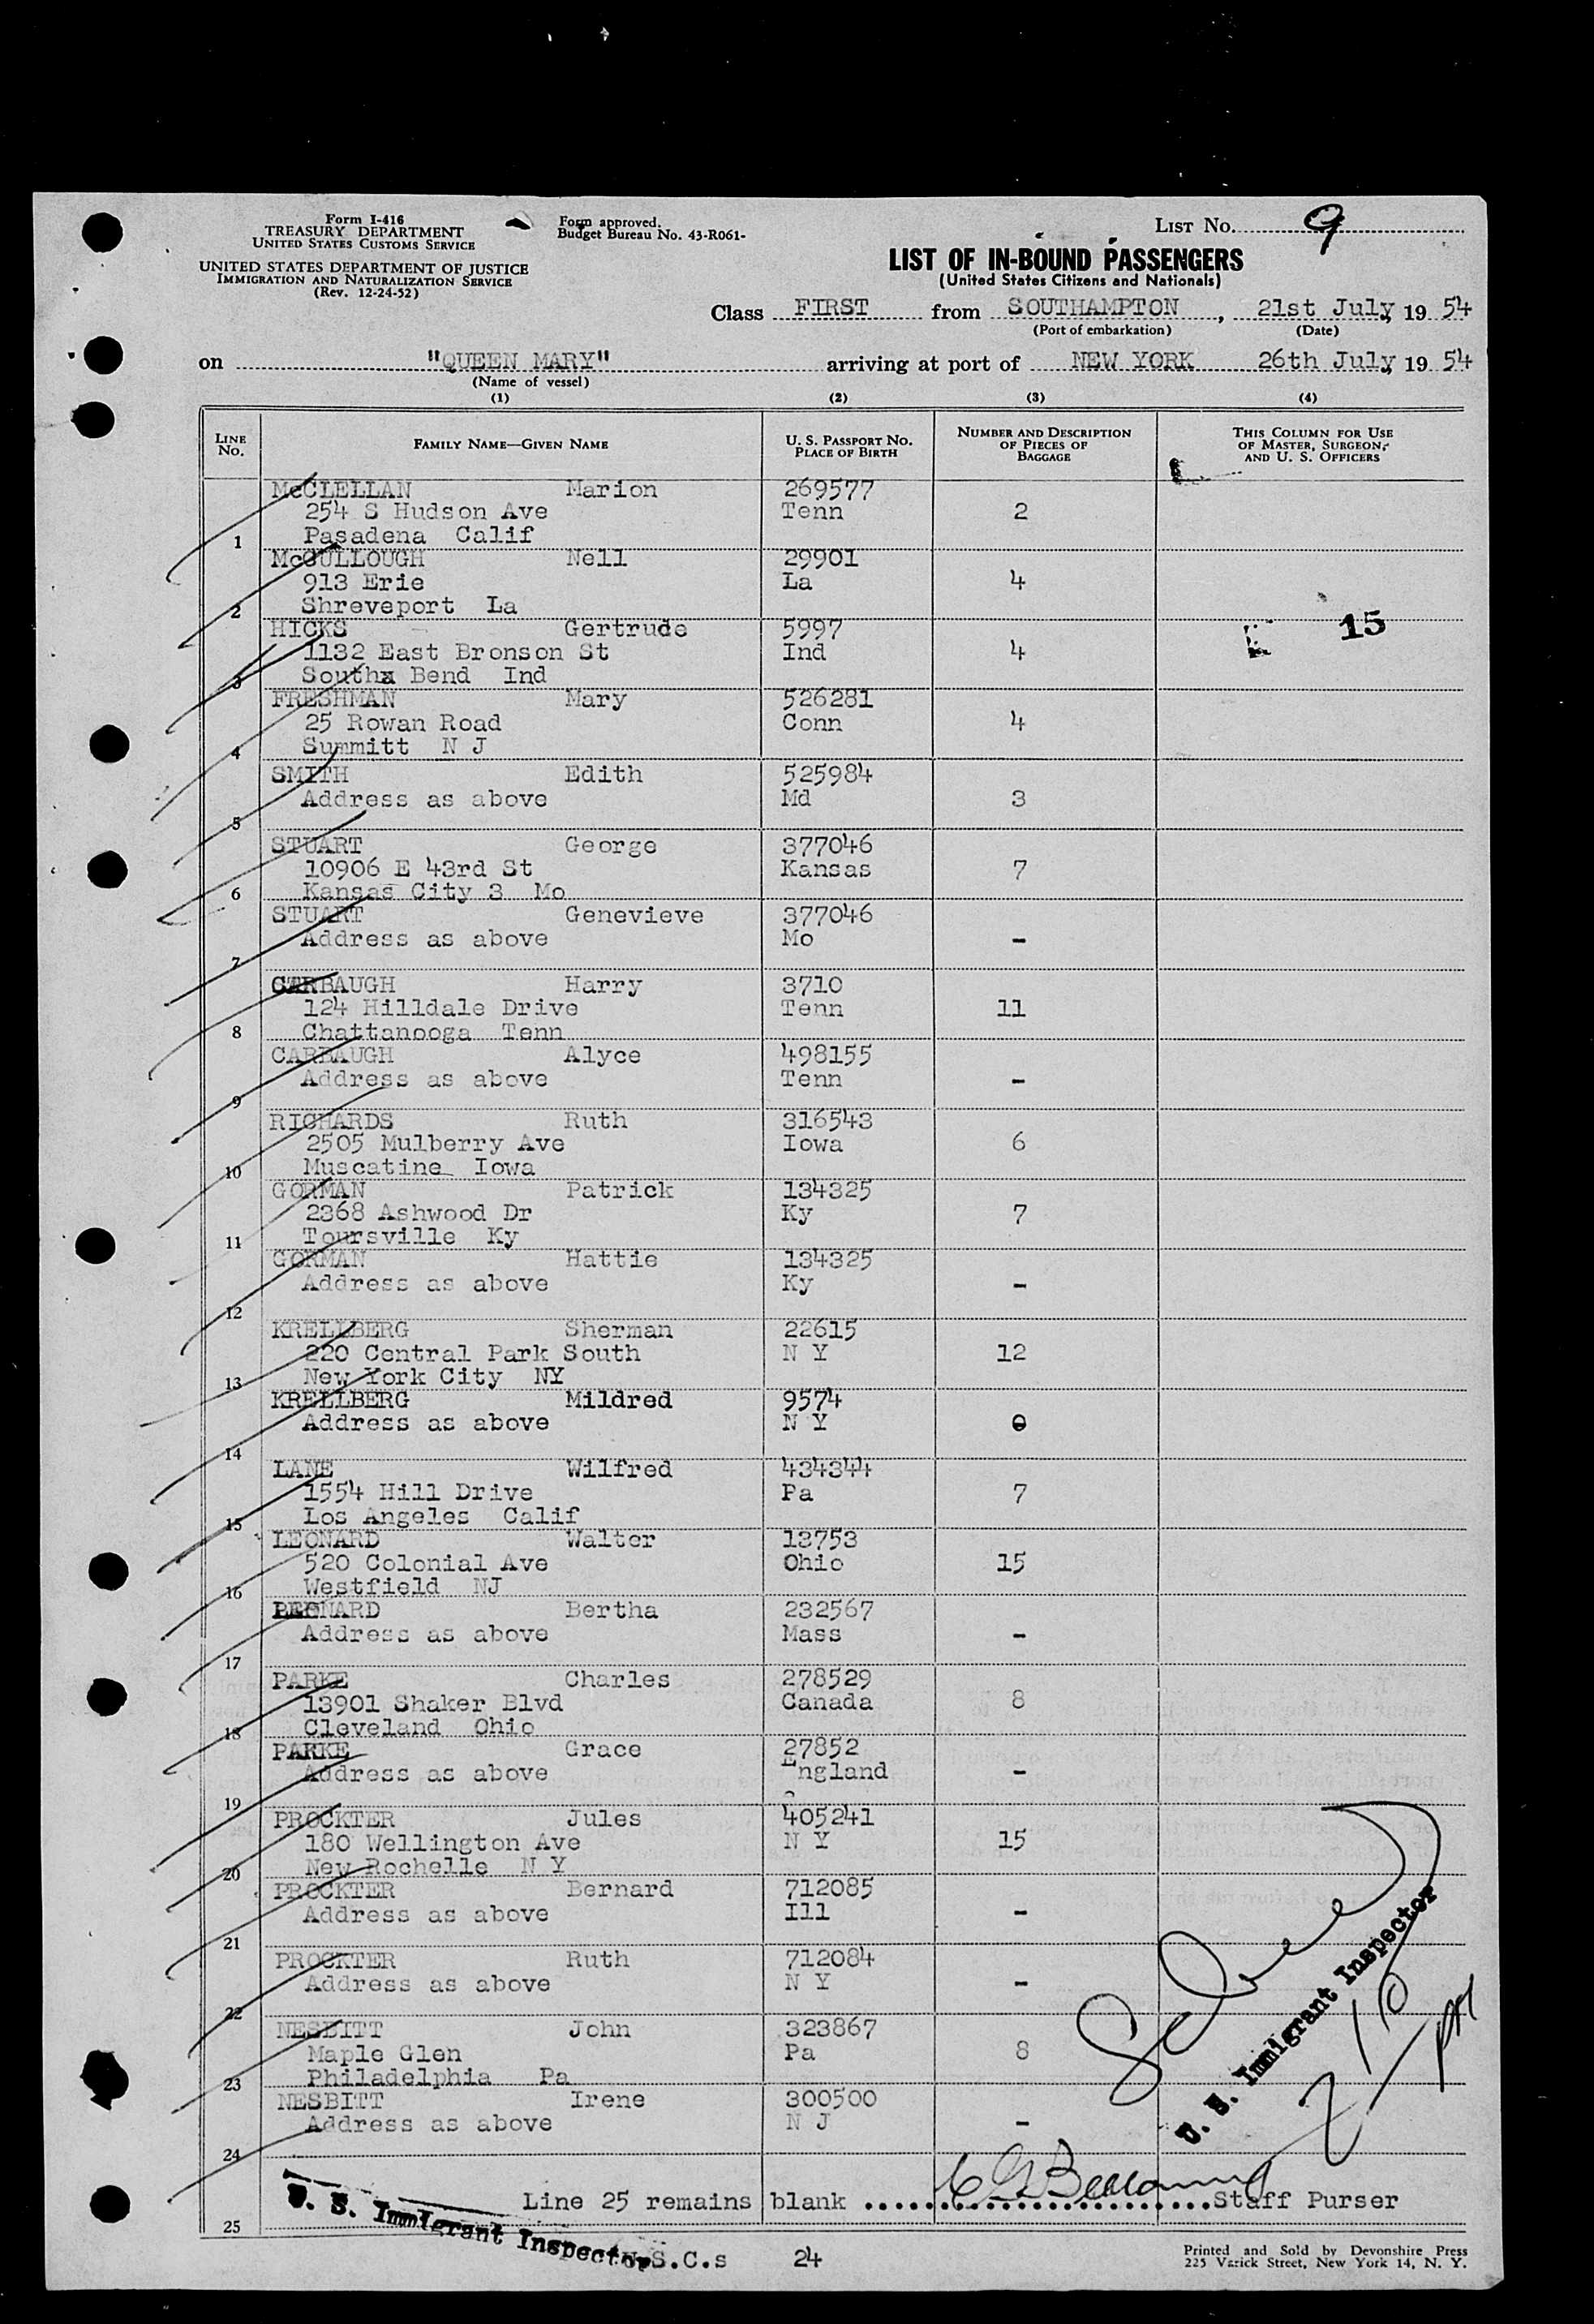 Form I-416
TREASURY DEPARTMENT
UNITED STATES CUSTOMS SERVICE
UNITED STATES DEPARTMENT OF JUSTICE
IMMIGRATION AND NATURALIZATION SERVICE
(Rev. 12-24-52)
Form approved.
Budget Bureau No. 43-R061-
LIST No. 9
LIST OF IN-BOUND PASSENGERS
(United States Citizens and Nationals)
Class FIRST from SOUTHAMPTON, 21st July, 19 54
(Port of embarkation) (Date)
on "QUEEN MARY" arriving at port of NEW YORK 26th July, 19 54
(Name of vessel)
(1) (2) (3) (4)
LINE No. FAMILY NAME—GIVEN NAME U. S. PASSPORT No. PLACE OF BIRTH NUMBER AND DESCRIPTION OF PIECES OF BAGGAGE THIS COLUMN FOR USE OF MASTER, SURGEON, AND U. S. OFFICERS
McCLELLAN Marion 269577
254 S Hudson Ave Tenn 2
1 Pasadena Calif
McCULLOUGH Nell 29901
913 Erie La 4
2 Shreveport La
HICKS Gertrude 5997 15
1132 East Bronson St Ind 4
3 Southx Bend Ind
FRESHMAN Mary 526281
25 Rowan Road Conn 4
4 Summitt N J
SMITH Edith 525984
Address as above Md 3
5
STUART George 377046
10906 E 43rd St Kansas 7
6 Kansas City 3 Mo
STUART Genevieve 377046
Address as above Mo -
7
CARBAUGH Harry 3710
124 Hilldale Drive Tenn 11
8 Chattanooga Tenn
CARBAUGH Alyce 498155
Address as above Tenn -
9
RICHARDS Ruth 316543
2505 Mulberry Ave Iowa 6
10 Muscatine Iowa
GORMAN Patrick 134325
2368 Ashwood Dr Ky 7
11 Toursville Ky
GORMAN Hattie 134325
Address as above Ky -
12
KRELLBERG Sherman 22615
220 Central Park South N Y 12
13 New York City NY
KRELLBERG Mildred 9574
Address as above N Y
14
LANE Wilfred 434344
1554 Hill Drive Pa 7
15 Los Angeles Calif
LEONARD Walter 13753
520 Colonial Ave Ohio 15
16 Westfield NJ
LEONARD Bertha 232567
Address as above Mass -
17
PARKE Charles 278529
13901 Shaker Blvd Canada 8
18 Cleveland Ohio
PARKE Grace 27852
Address as above England -
19
PROCKTER Jules 405241
180 Wellington Ave N Y 15
20 New Rochelle N Y
PROCKTER Bernard 712085
Address as above Ill -
21
PROCKTER Ruth 712084
Address as above N Y -
22
NESBITT John 323867
Maple Glen Pa 8
23 Philadelphia Pa
NESBITT Irene 300500
Address as above N J -
24
U. S. Immigrant Inspector
2/10 PM
Line 25 remains blank ........ Staff Purser
25
U. S. Immigrant Inspector
S.C.s 24
Printed and Sold by Devonshire Press
225 Varick Street, New York 14, N. Y.